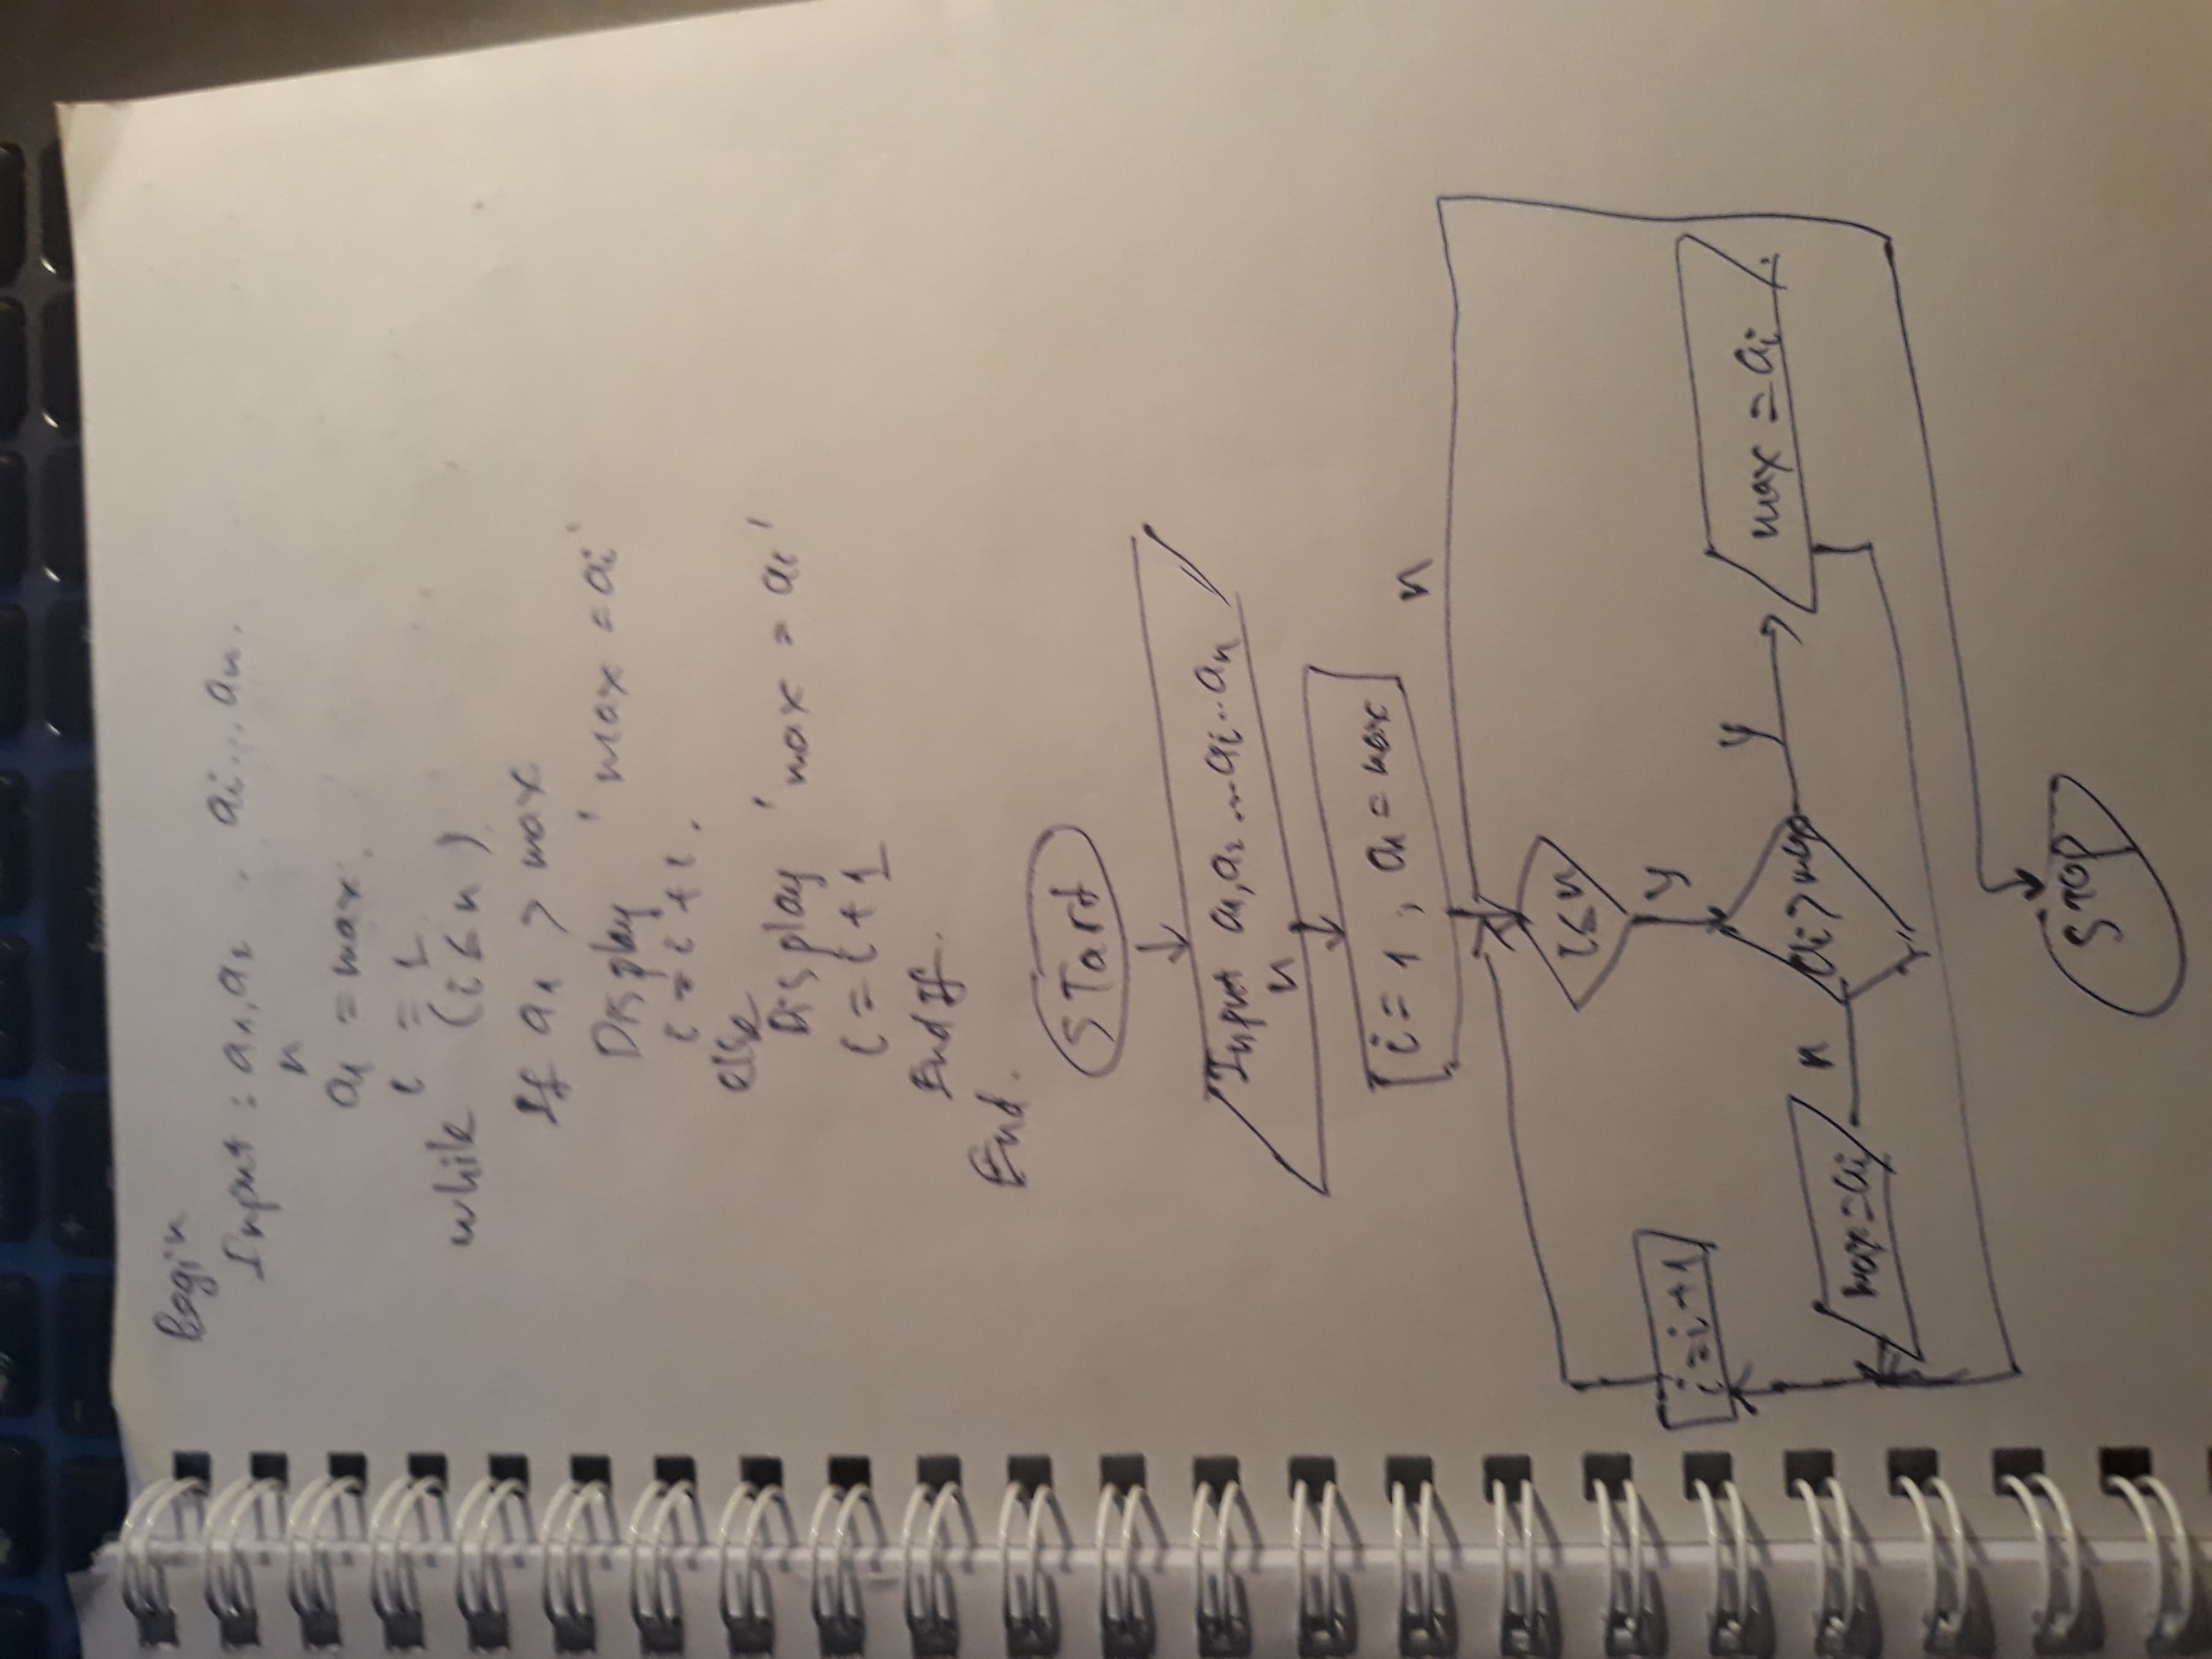 Begin
Input : a1, a2 .. ai... an.
n
a1 = max.
i = 1
while (i ≤ n)
If a1 > max
Display 'max = ai'
i = i + 1.
else
Display 'max = a1'
i = i + 1
End If.
End.
START
Input a1, a2 ... ai .. an
n
i = 1, a1 = max
n
i ≤ n
y
ai > max
y
max = ai
n
max = ai
i = i + 1
STOP